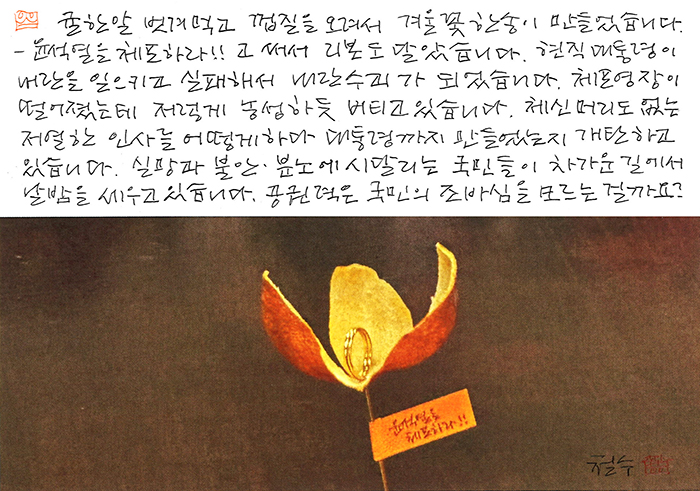 귤 한알 벗겨먹고 껍질을 오려서 겨울꽃 한송이 만들었습니다.
- 윤석열을 체포하라!! 고 써서 리본도 달았습니다. 현직 대통령이
내란을 일으키고 실패해서 내란수괴가 되었습니다. 체포영장이
떨어졌는데 저렇게 농성하듯 버티고 있습니다. 체신머리도 없는
저열한 인사를 어떻게하다 대통령까지 만들었는지 개탄하고
있습니다. 실망과 불안·분노에 시달리는 국민들이 차가운 길에서
날밤을 세우고 있습니다. 공권력은 국민의 조바심을 모르는 걸까요?
윤석열을
체포하라!!
철수